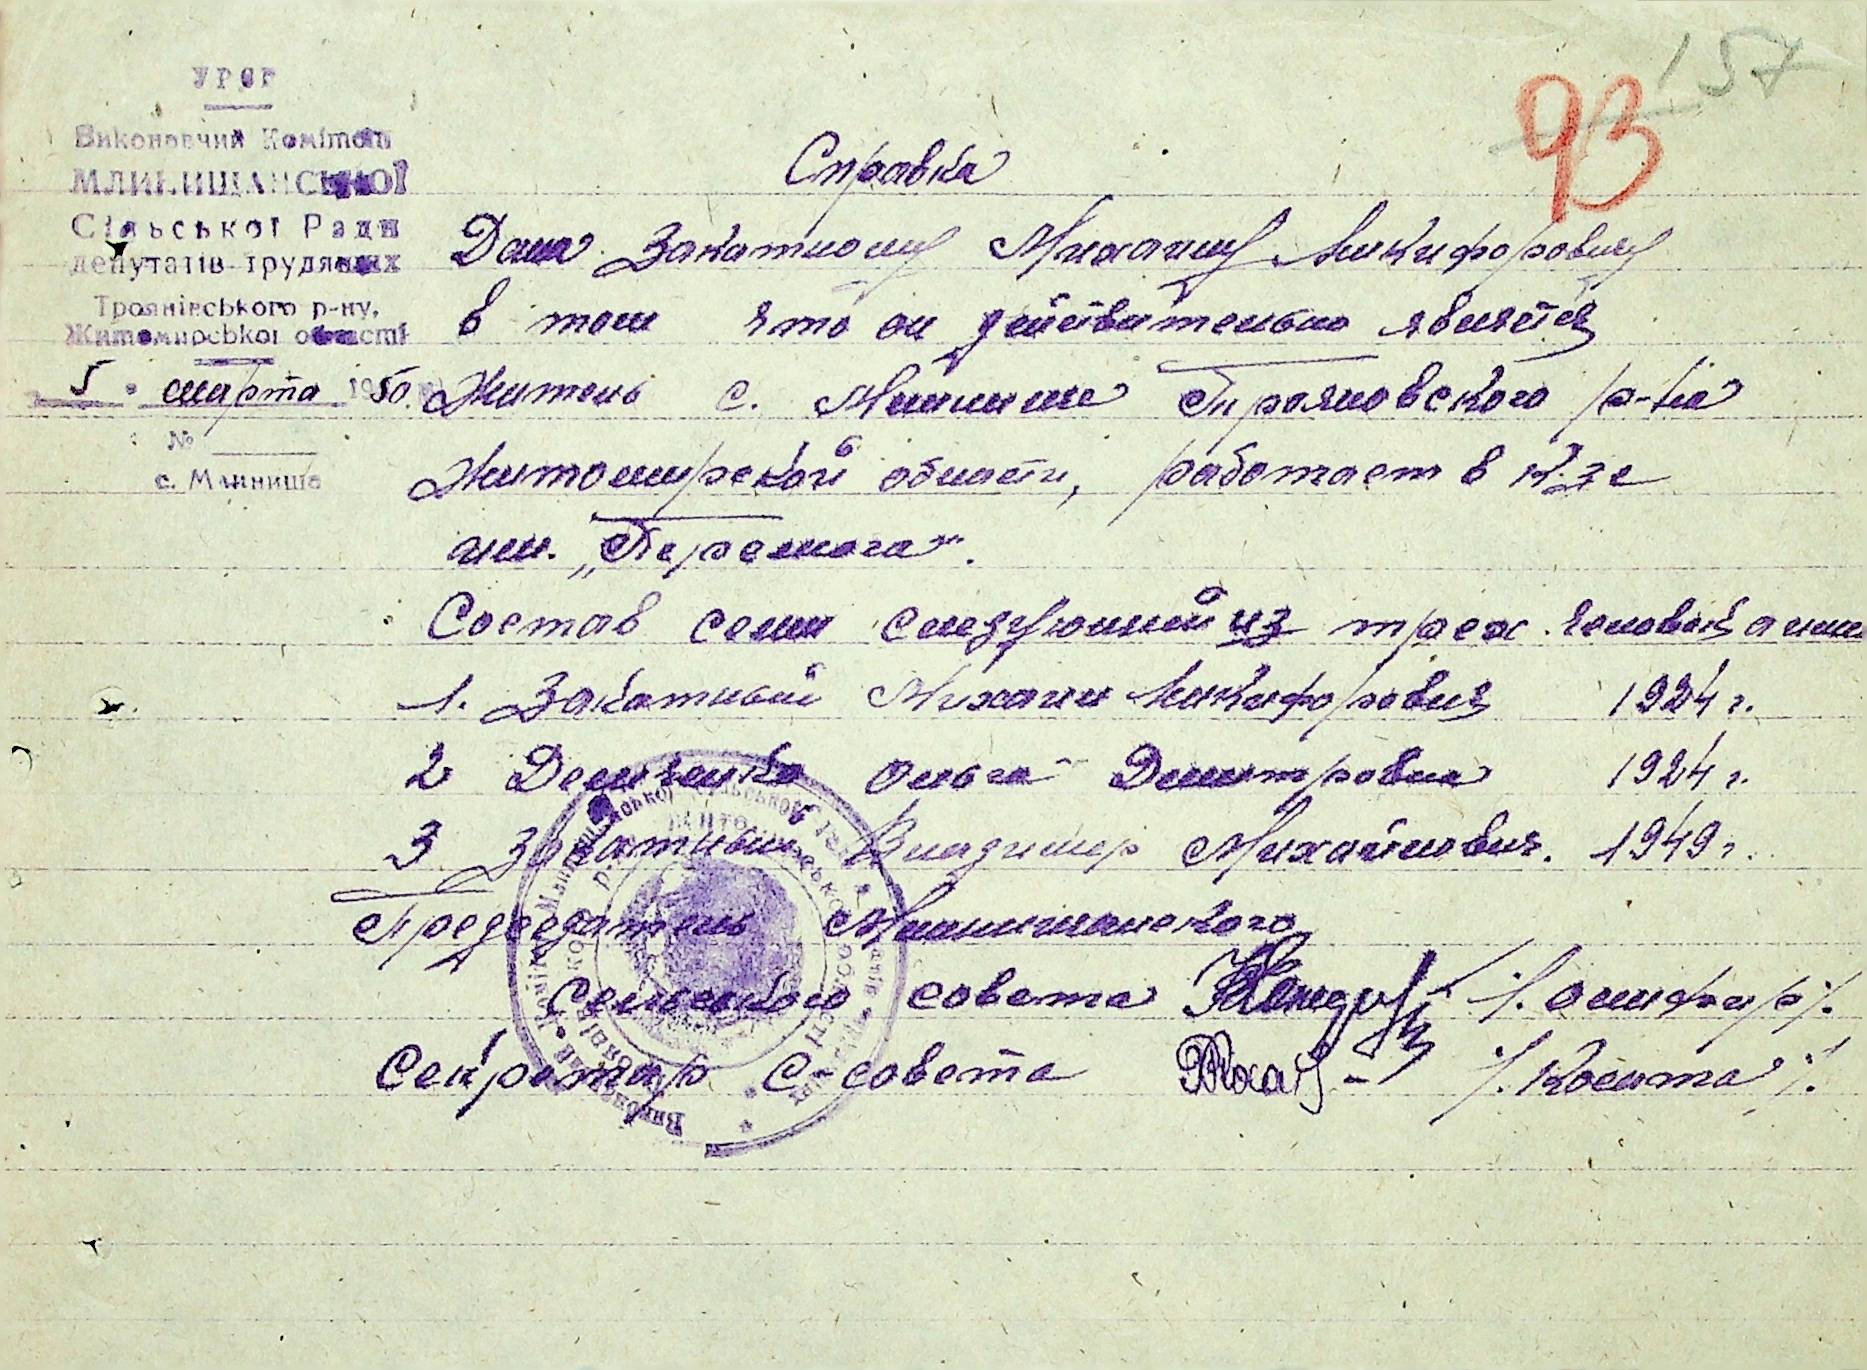 157
93
УРСР
Виконавчий Комітет
МЛИНИЩАНСЬКОЇ
Сільської Ради
депутатів трудящих
Троянівського р-ну,
Житомирської області
5 " марта 1950
№
с. Млинище
Справка
Дана Закатному Михаилу Никифоровичу
в том что он действительно является
Житель с. Млинище Трояновского р-на
Житомирской области, работает в к-зе
им. „Перемога".
Состав семи следующий из трех человек а имен
1. Закатный Михаил Никифорович 1924 г.
2 Демченко Ольга Дмитровна 1924 г.
3 Закатный Владимир Михайлович. 1949 г.
Председатель Млинищанского
Сельского совета
Секретар С-совета